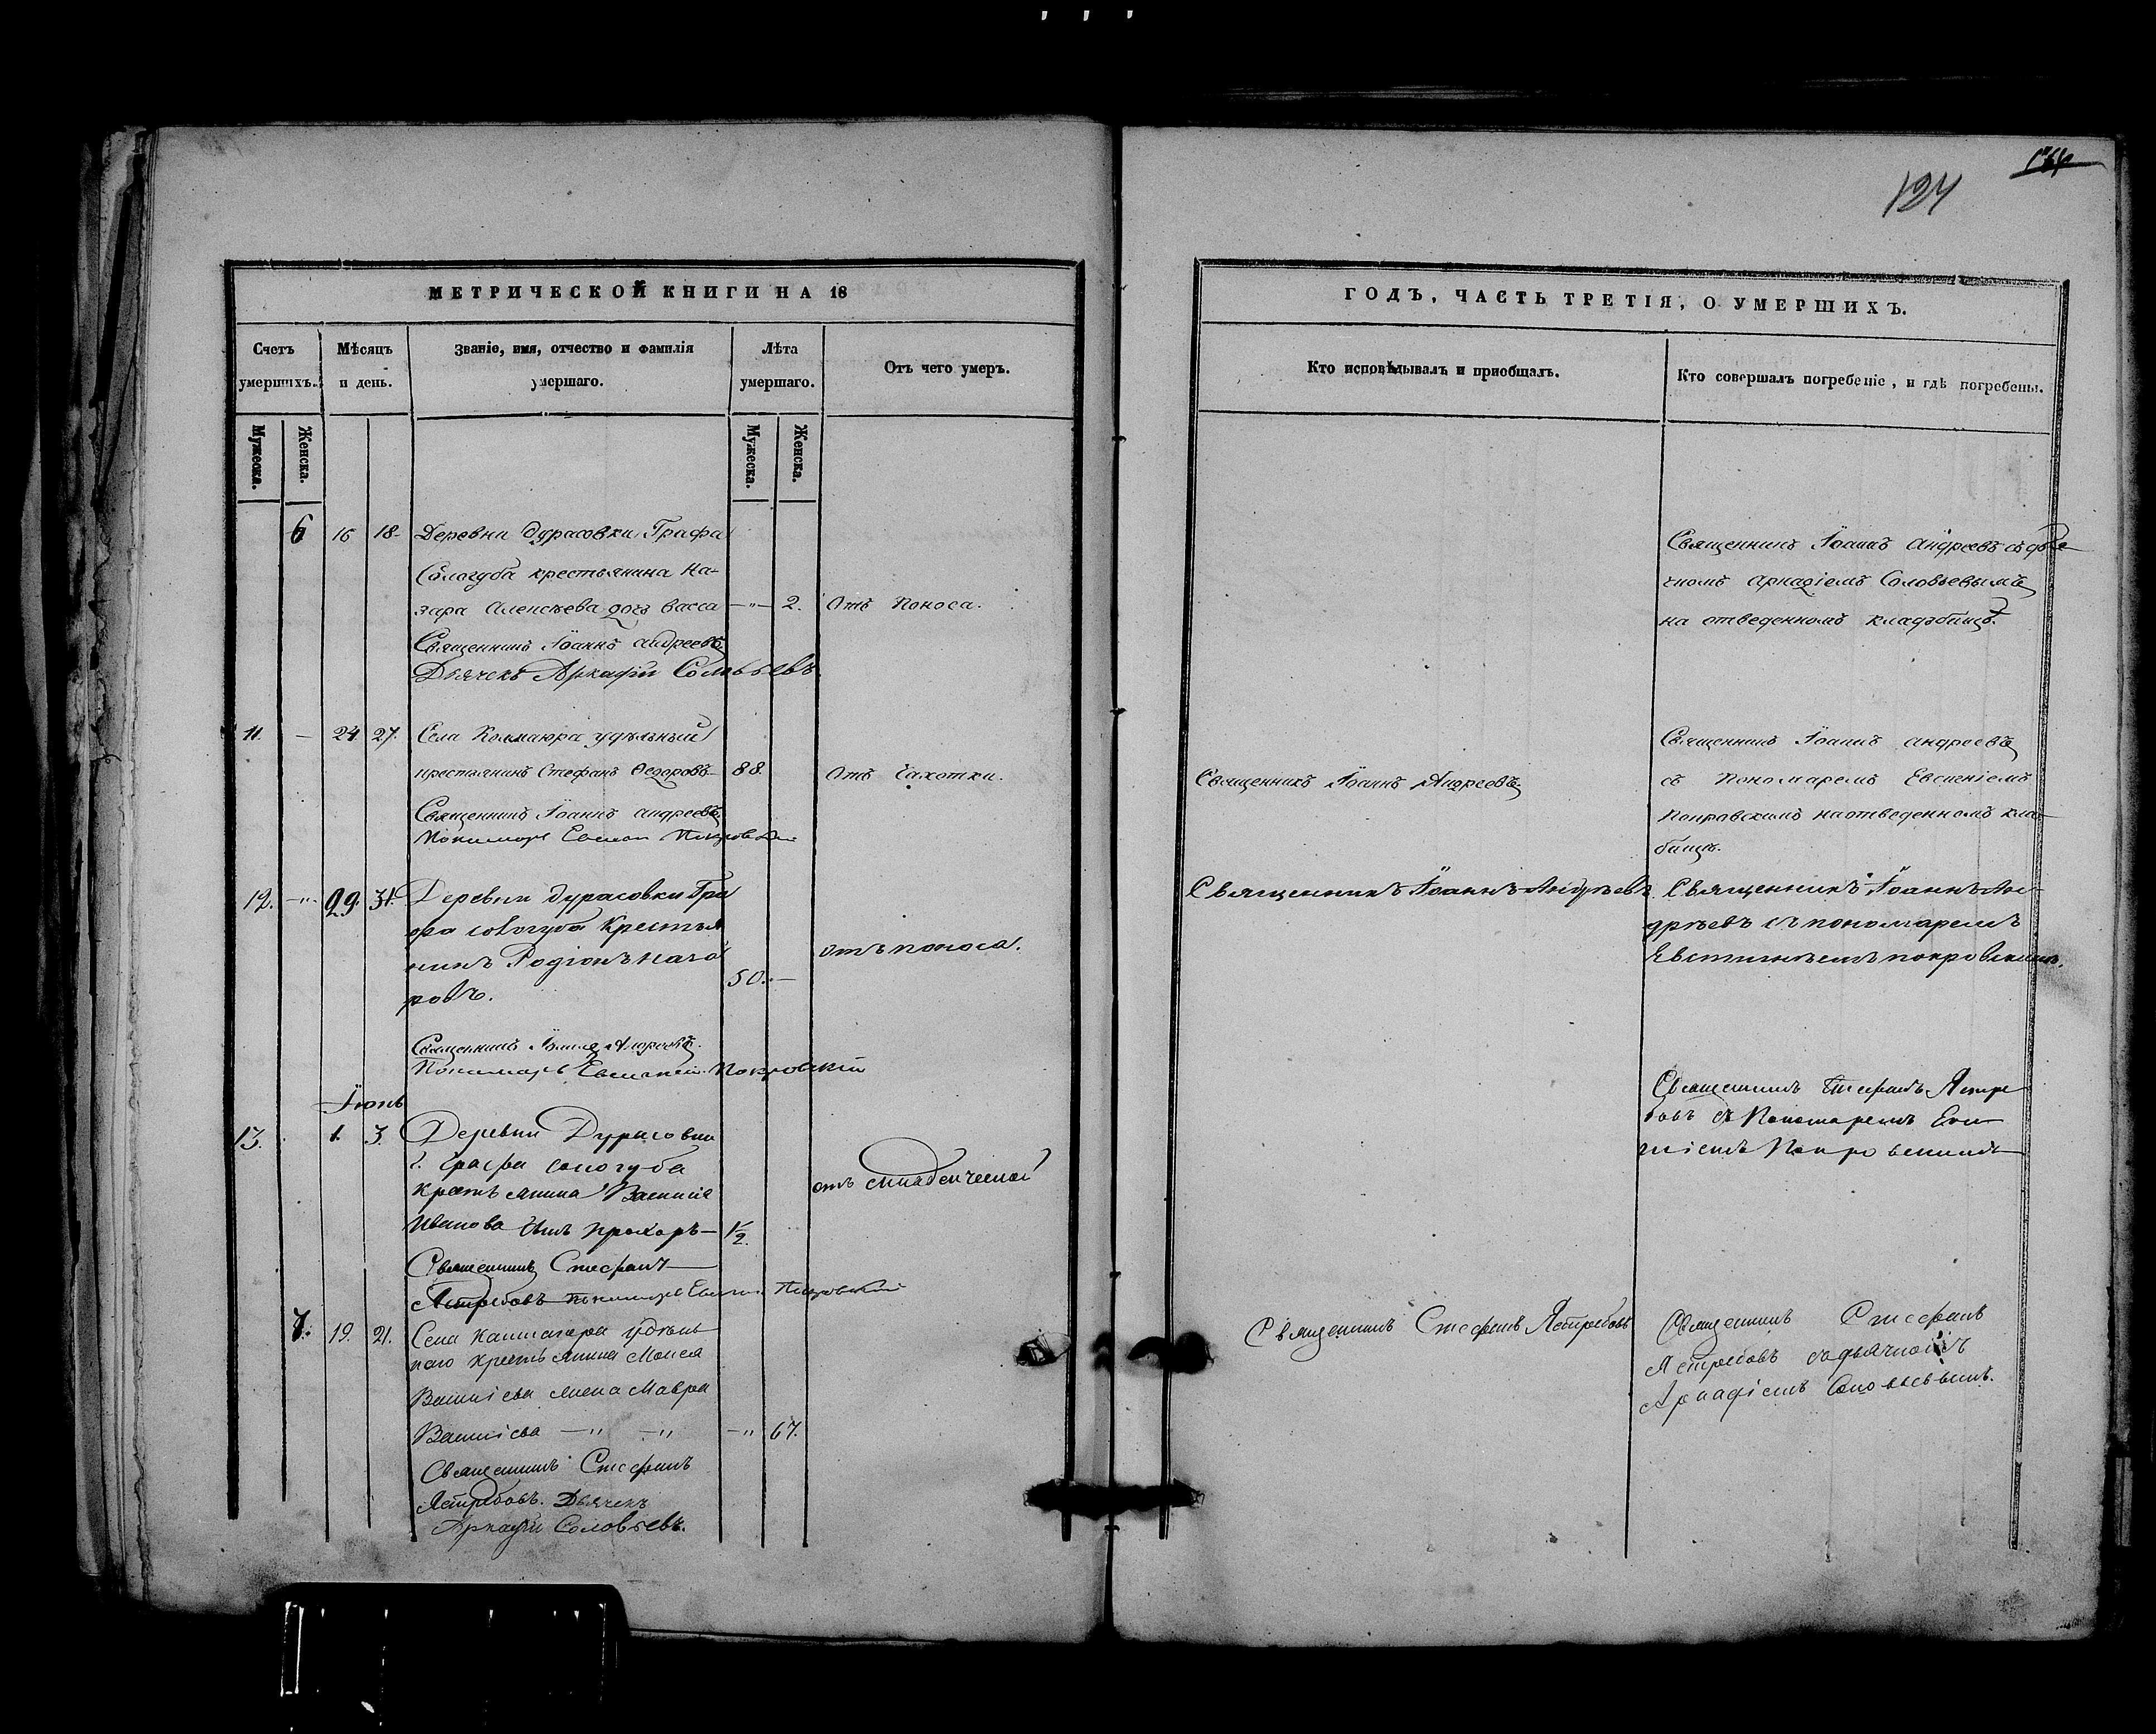 124
МЕТРИЧЕСКОЙ КНИГИ НА 18
Счетъ умершихъ.
Мѣсяцъ и день.
Званіе, имя, отчество и фамилія умершаго.
Лѣта умершаго.
Отъ чего умеръ.
Мужеска.
Женска.
Мужеска.
Женска.
6 16 18 Деревни Дурасовки Графа
Сологуба крестьянина На-
зара Алексѣева дочь Васса —"— 2. Отъ поноса.
Священникъ Іоаннъ Андреевъ
Дьячекъ Аркадій Соловьевъ
11. — 24 27. Села Колмаюра удѣльный
крестьянинъ Стефанъ Ѳедоровъ 88. Отъ чахотки.
Священникъ Іоаннъ Андреевъ
Пономарь Покровскій
12. —"— 29. 31. Деревни Дурасовки Гра
фа Сологуба Крестья
нинъ Родіонъ Наза
ровъ. 50. — отъ поноса.
Священникъ Іоаннъ Андреевъ
Пономарь Покровскій
Іюнь
13. 1. 3. Деревни Дурасовки
Г. Графа Сологуба
Крестьянина Василія
Иванова сынъ Прохоръ — 1/2. отъ младенческой
Священникъ Стефанъ
Ястребовъ Пономарь Покровскій
7. 19. 21. Села Калмаюра удѣль
наго крестьянина Моисея
Василіева жена Мавра
Василіева —" —" —" 67.
Священникъ Стефанъ
Ястребовъ. Дьячекъ
Аркадій Соловьевъ.
ГОДЪ, ЧАСТЬ ТРЕТІЯ, О УМЕРШИХЪ.
Кто исповѣдывалъ и пріобщалъ.
Кто совершалъ погребеніе, и гдѣ погребены.
Священникъ Іоаннъ Андреевъ съ дья
чкомъ Аркадіемъ Соловьевымъ
на отведенномъ кладбищѣ.
Священникъ Іоаннъ Андреевъ
Священникъ Іоаннъ Андреевъ
съ Пономаремъ Евсигніемъ
Покровскимъ на отведенномъ кла
бищѣ.
Священникъ Іоаннъ Андрѣевъ.
Священникъ Іоаннъ Ан-
дрѣевъ съ пономаремъ
покровскимъ.
Священникъ Стефанъ Ястре
бовъ съ Пономаремъ Евси
гніемъ Покровскимъ
Священникъ Стефанъ Ястребовъ
Священникъ Стефанъ
Ястребовъ съ дьячкомъ
Аркадіемъ Соловьевымъ.